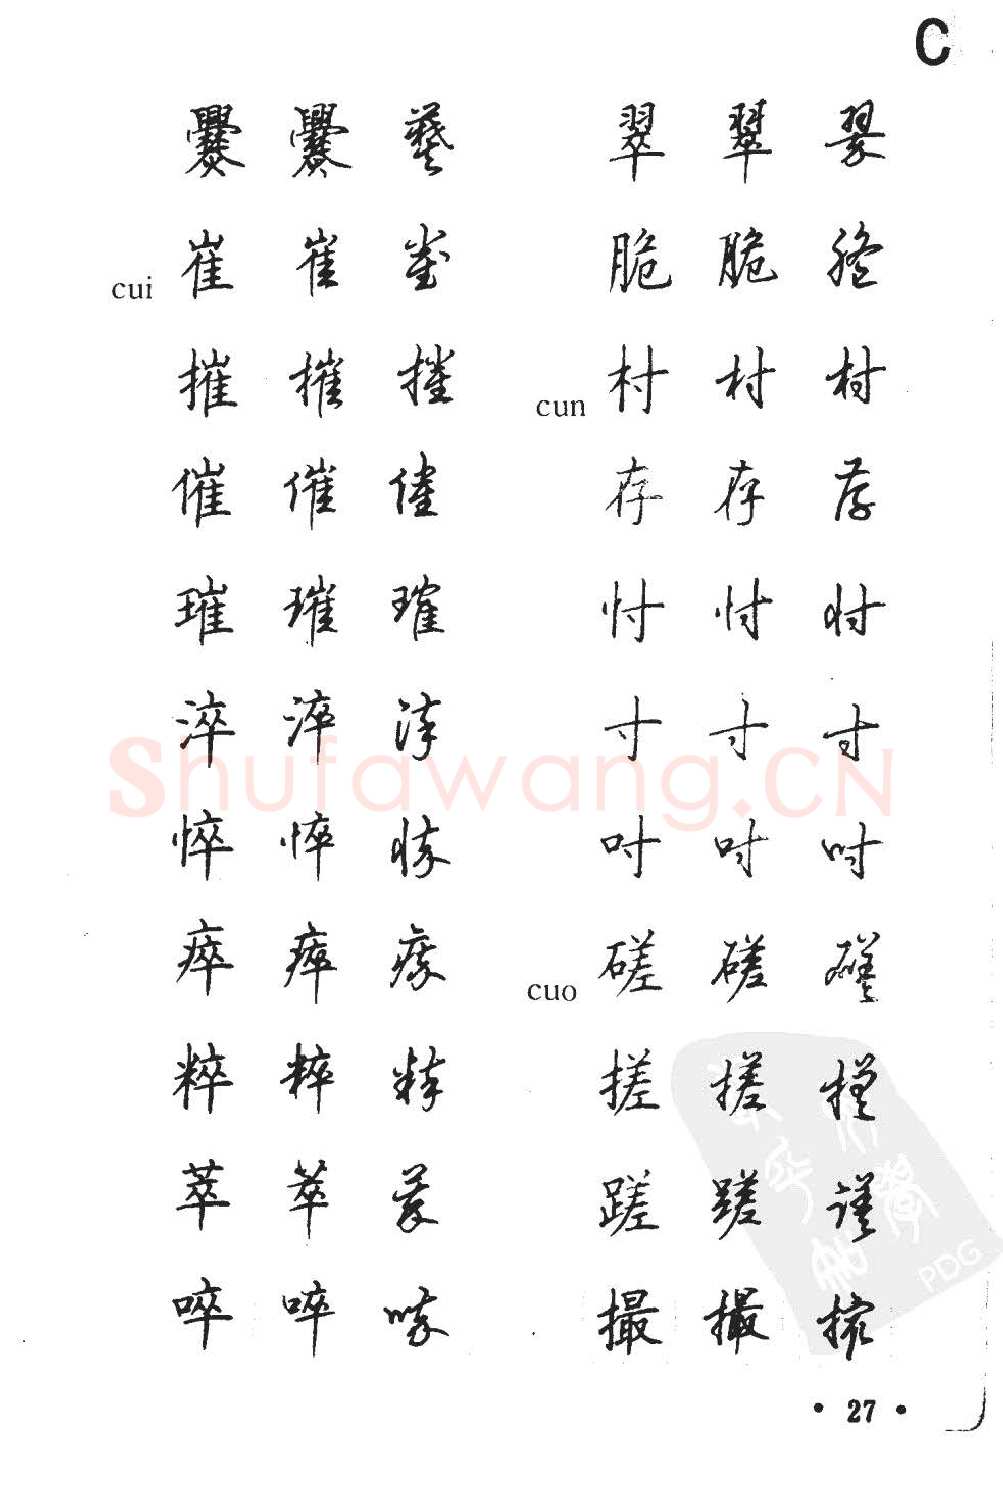 C
爨 爨 爨 翠 翠 翠
cui 崔 崔 崔 脆 脆 脆
摧 摧 摧 cun 村 村 村
催 催 催 存 存 存
璀 璀 璀 忖 忖 忖
淬 淬 淬 寸 寸 寸
Shufawang.CN
悴 悴 悴 吋 吋 吋
瘁 瘁 瘁 cuo 磋 磋 磋
粹 粹 粹 搓 搓 搓
萃 萃 萃 蹉 蹉 蹉
啐 啐 啐 撮 撮 撮
PDG
• 27 •